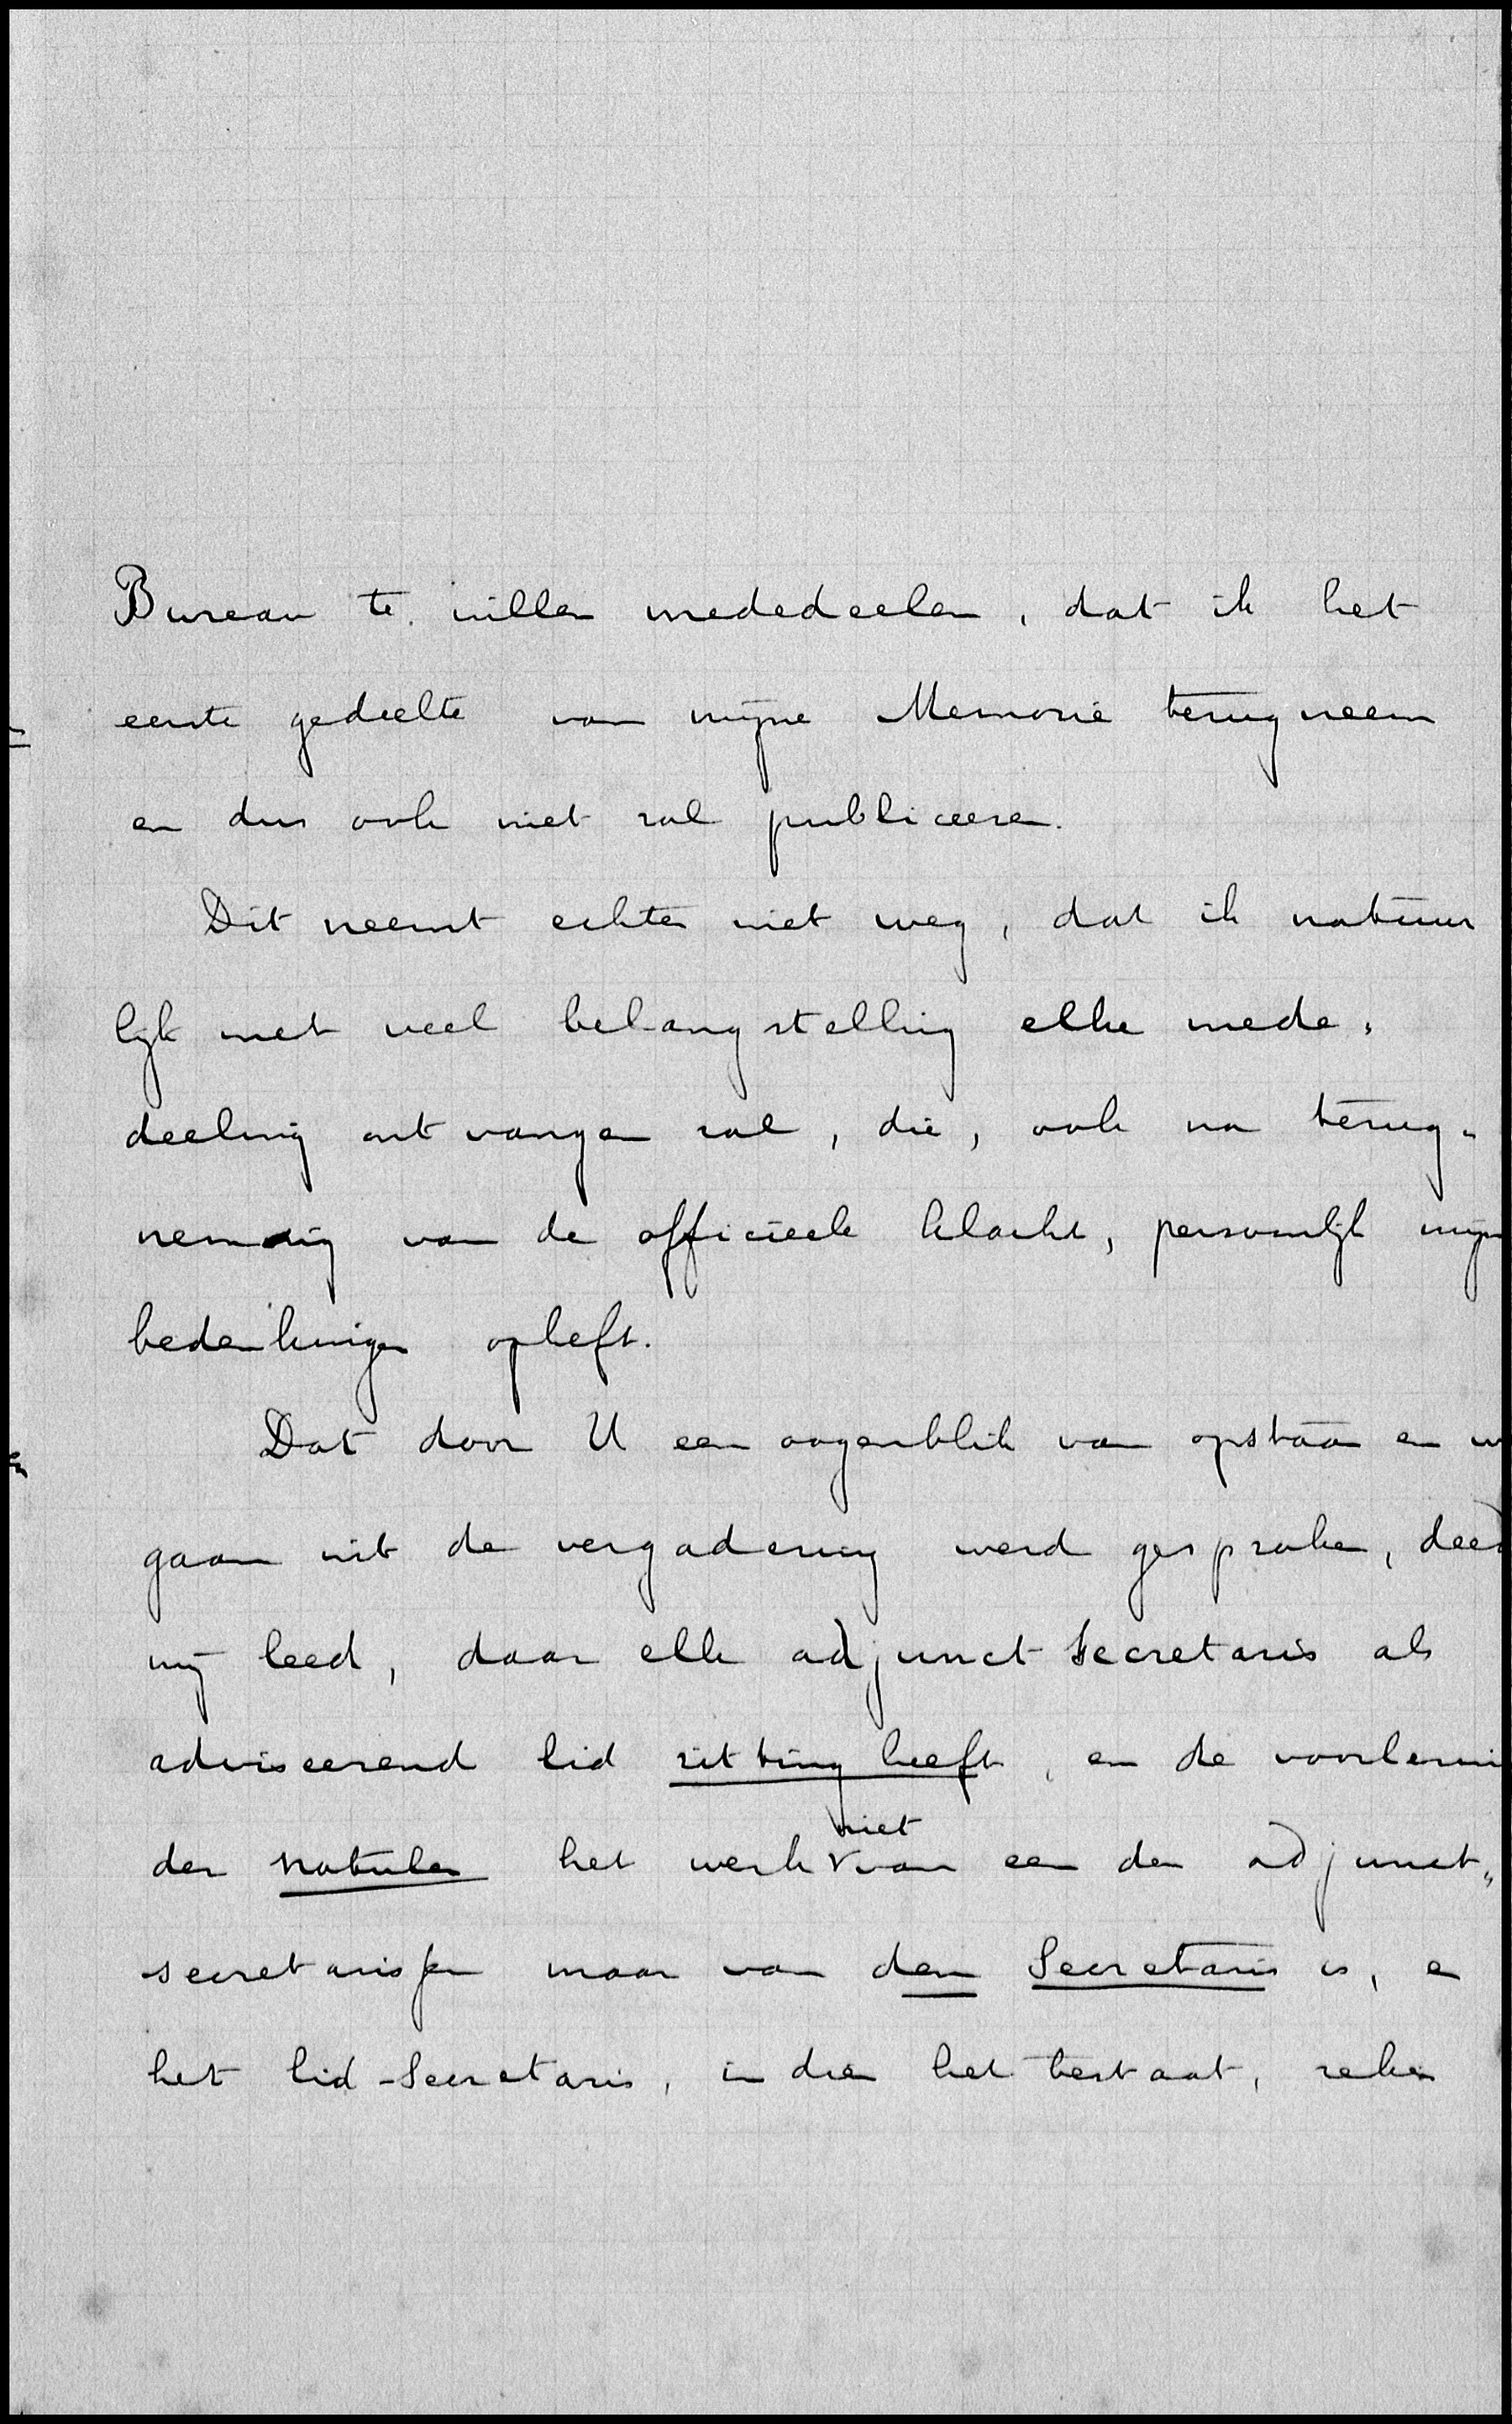 Bureau te willen mededeelen, dat ik het
eerste gedeelte van mijne Memorie terugneem
en dus ook niet zal publiceeren.
Dit neemt echter niet weg, dat ik natuur
lijk met veel belangstelling elke mede„
deeling ontvangen zal, die, ook na terug„
neming van de officieele klacht, persoonlijk mijn
bedenkingen opheft.
Dat door U een oogenblik van opstaan en w
gaan uit de vergadering werd gesproken, deed
mij leed, daar elk adjunct secretaris als
adviseerend lid zitting heeft, en de voorlezin
der notulen het werk niet van een der adjunct„
secretarissen maar van den Secretaris is, en
het lid-Secretaris, indien het bestaat, zeker